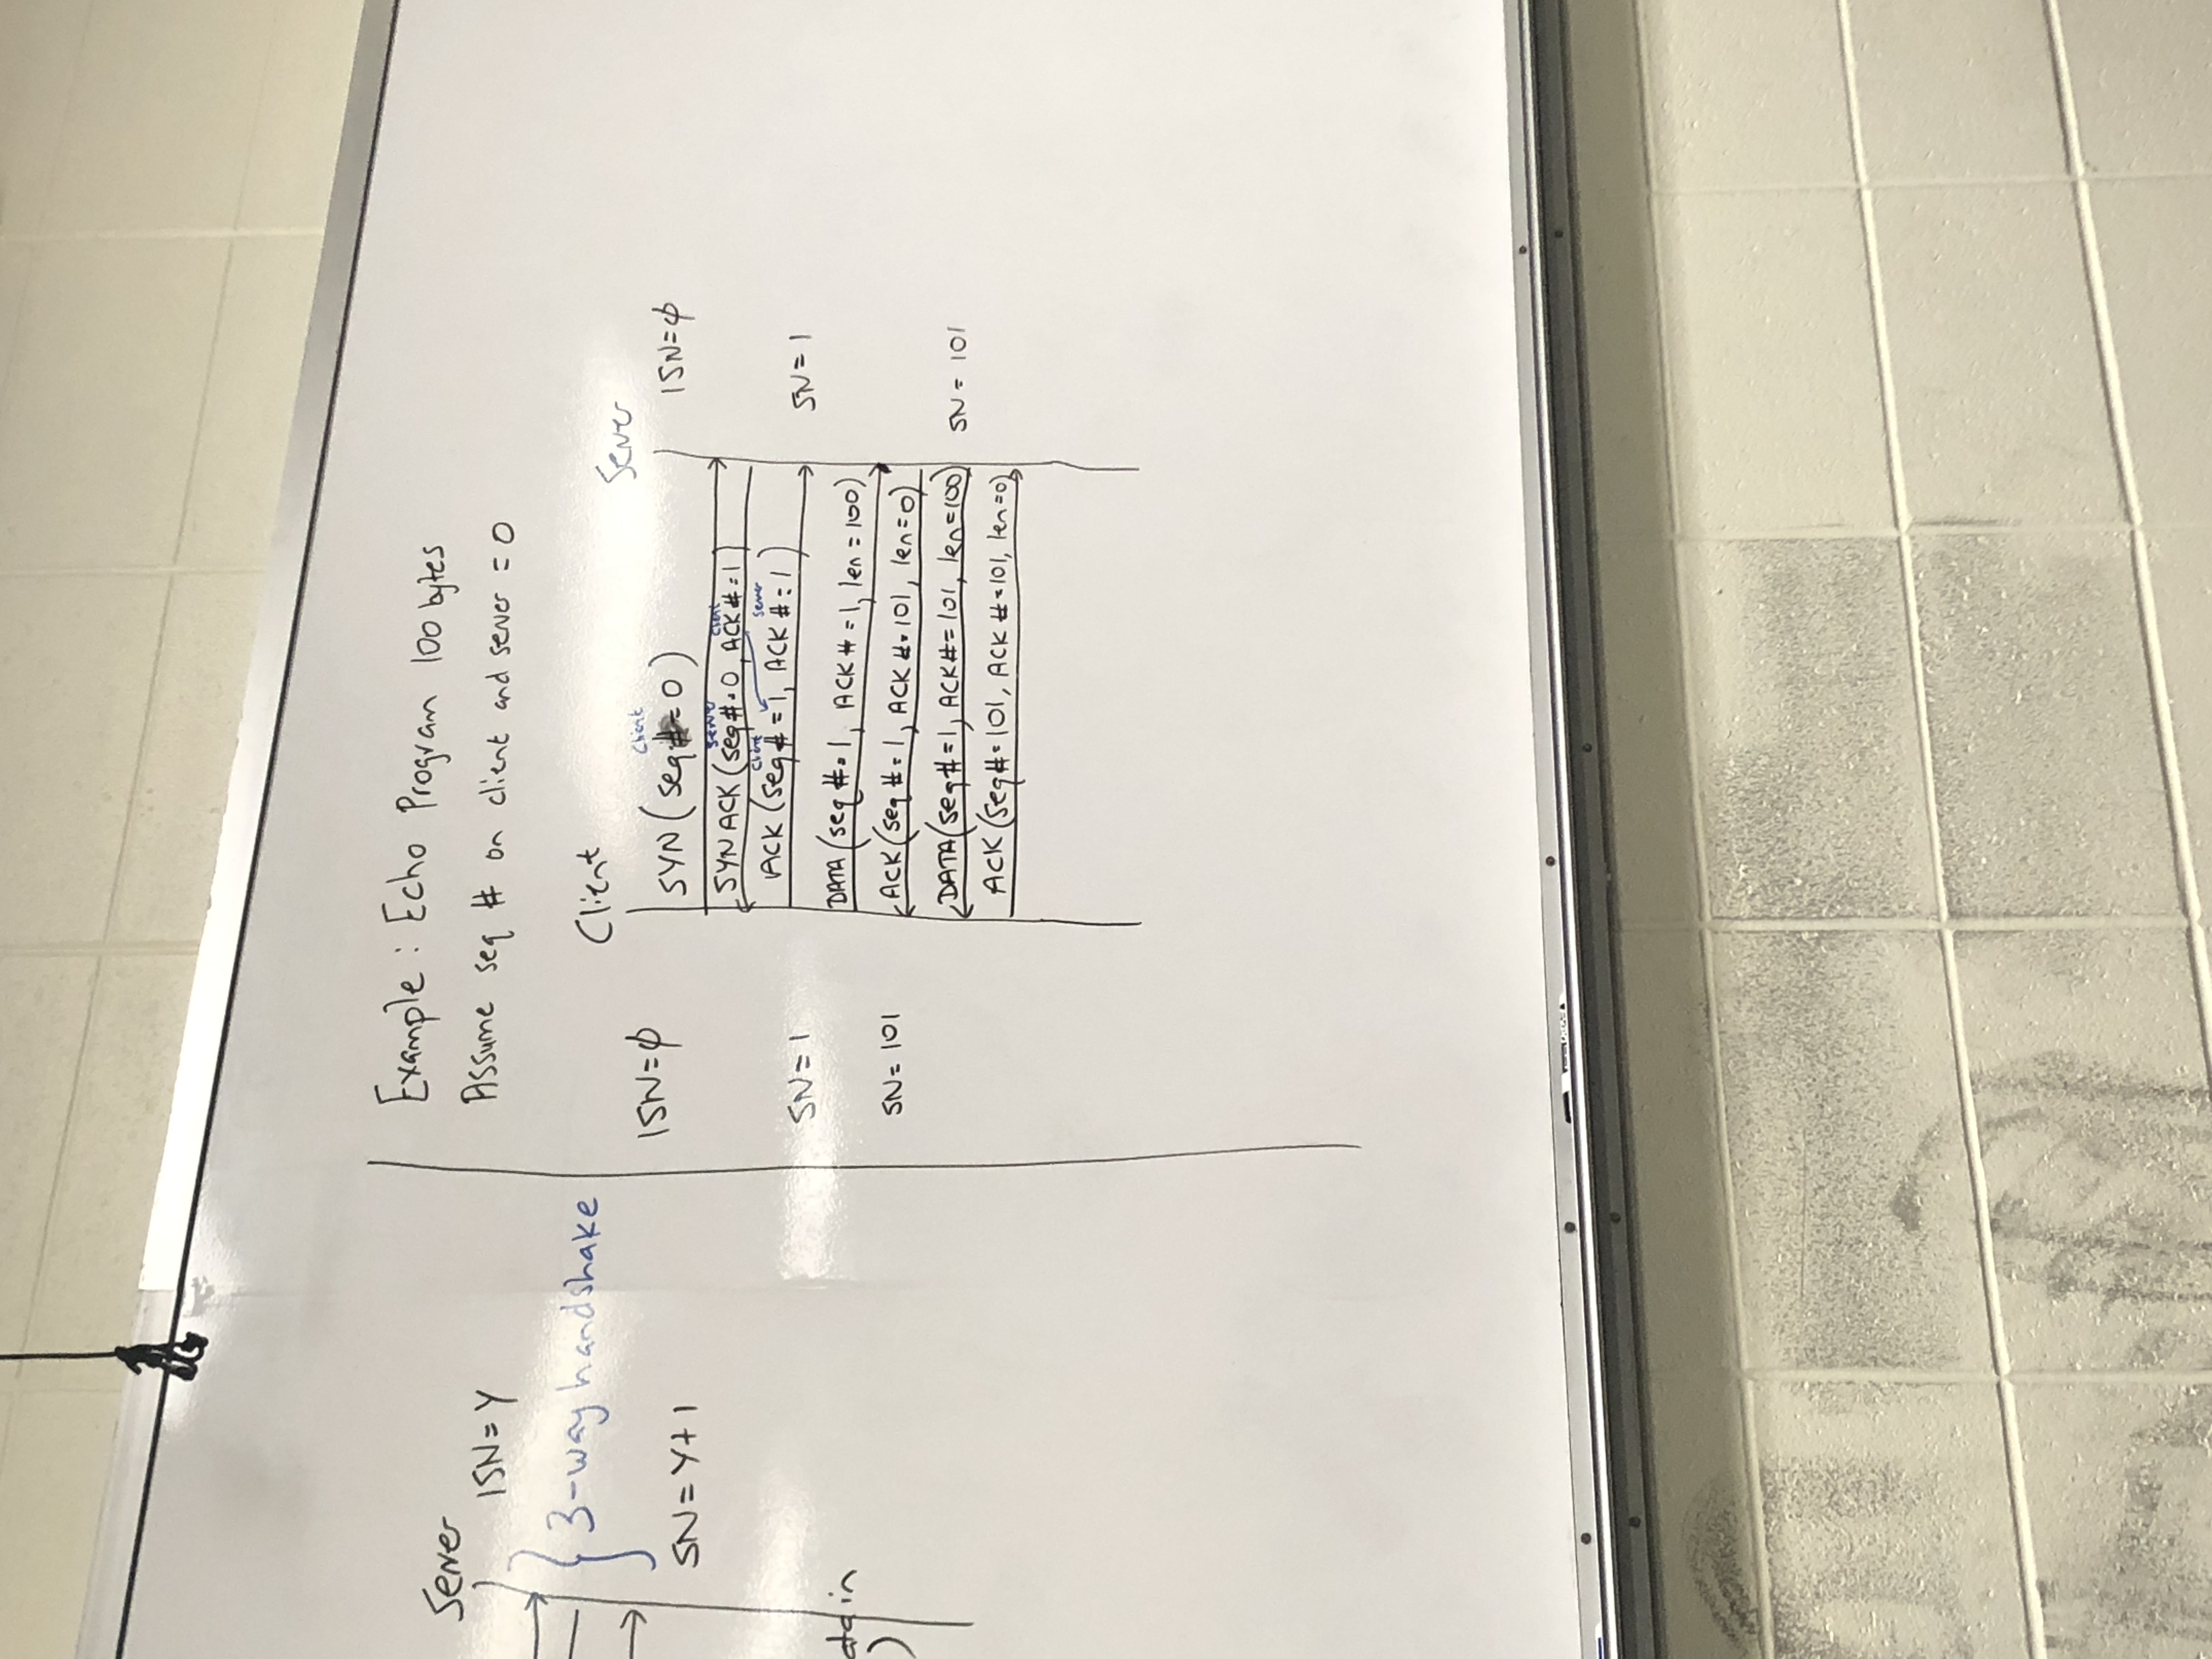 Server
ISN=Y
3-way handshake
SN=Y+1
in
)
Example: Echo Program 100 bytes
Assume seq # on client and server = 0
Client
Server
ISN=φ
ISN=φ
Client
SYN (seq #=0)
Server Client
SYN ACK (seq #=0, ACK #=1)
Client Server
ACK (seq #=1, ACK #=1)
SN=1
SN=1
DATA (seq #=1, ACK #=1, len=100)
SN=101
ACK (seq #=1, ACK #=101, len=0)
DATA (seq #=1, ACK #=101, len=100)
SN=101
ACK (seq #=101, ACK #=101, len=0)